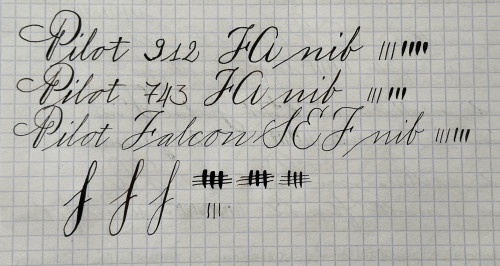 Pilot 912 FA nib
Pilot 743 FA nib
Pilot Falcon SEF nib
f f f